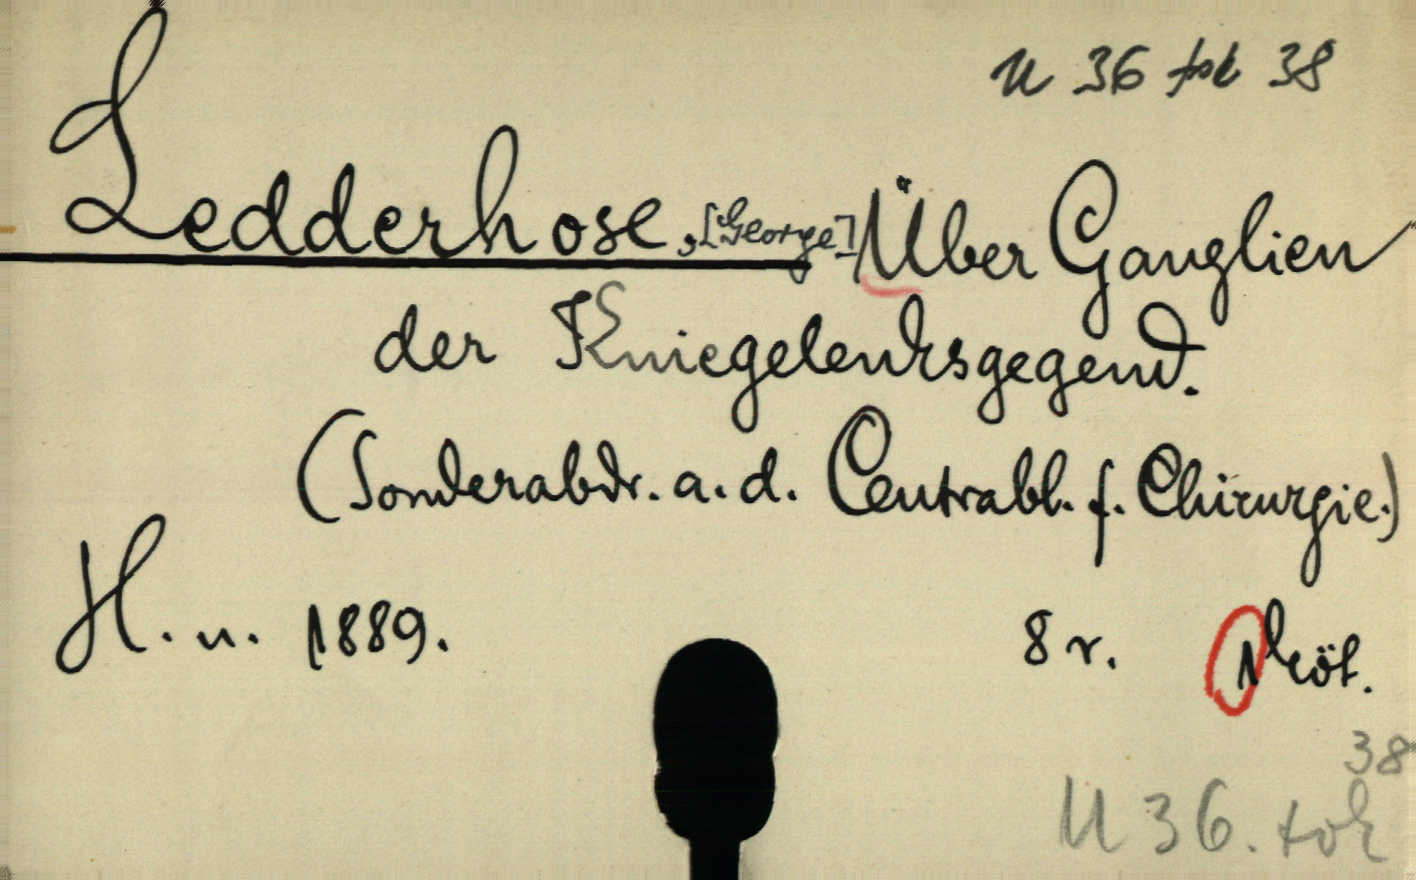 U 36 tok 38
Ledderhose, [George] Über Ganglien
der Kniegelenksgegend.
(Sonderabdr. a. d. Centrabl. f. Chirurgie.)
H. n. 1889.
8 r. 1 köt.
38
U 36. tok